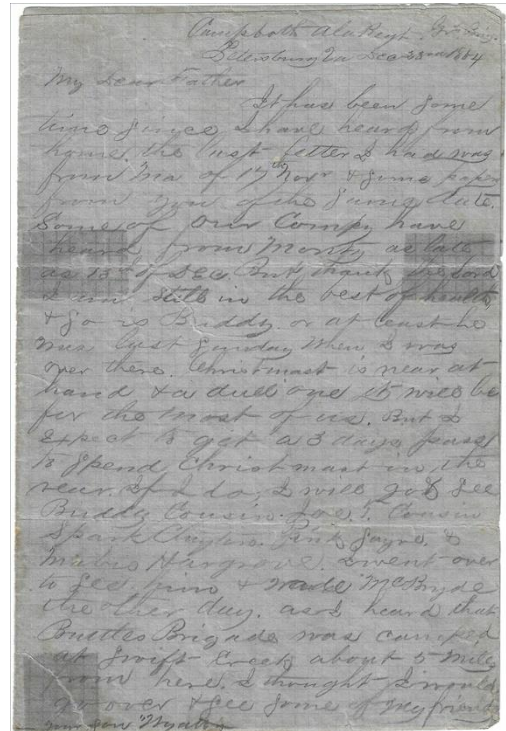 Camp 60th Ala Regt.
Petersburg Va Dec 23rd 1864
My Dear Father
It has been some
time since I have heard from
home, the last letter I had was
from Ma of 17th Novr & some papers
from you of the same date.
Some of our Compy have
heard from Monty as late
as 13th of Dec. But thank the Lord
I am still in the best of health
& so is Buddy or at least he
was last Sunday when I was
over there. Christmast is near at
hand & a dull one it will be
for the most of us. But I
expect to get a 3 days pass
to spend Christmast in the
rear. If I do, I will go & see
Buddy Cousin Joe, Cousin
Spark Clayton. Pink Jayne. &
Hargrove. I went over
to see him & Wade McBryde
the other day. as I heard that
Brigade was camped
at Swift Creek about 5 miles
from here. I thought I would
go over & see some of my friends
your son